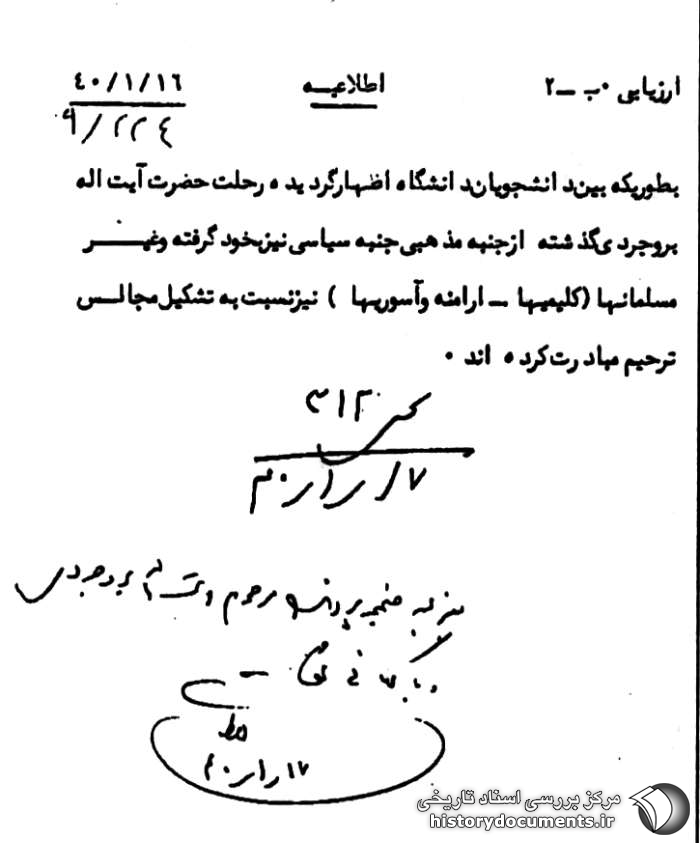 ارزیابی ۰ب – ۲ اطلاعیـه ٤۰/۱/۱٦
۹/۲۲٤
بطوریکه بین دانشجویان دانشگاه اظهار گردیده رحلت حضرت آیت اله
بروجردی گذشته از جنبه مذهبی جنبه سیاسی نیز بخود گرفته و غیر
مسلمانها (کلیمیها – ارامنه و آسوریها) نیز نسبت به تشکیل مجالس
ترحیم مبادرت کرده اند ۰
۳۱۲
۱۷/۱/۴۰
ضمیمه پرونده مرحوم بروجردی
بایگانی
۱۷/۱/۴۰
مرکز بررسی اسناد تاریخی
historydocuments.ir